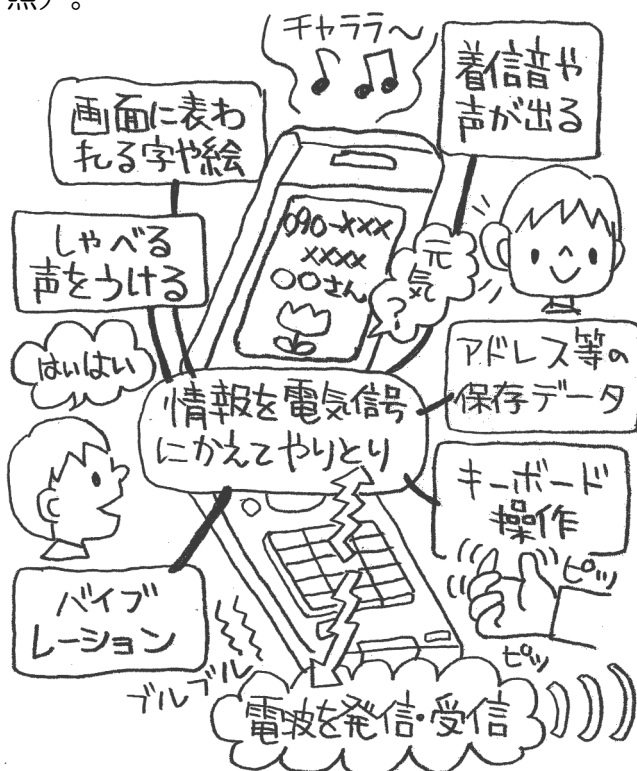 照）。
チャララ～
着信音や
声が出る
画面に表わ
れる字や絵
しゃべる
声をうける
090-xxx
xxxx
○○さん
元気？
はいはい
アドレス等の
保存データ
情報を電気信号
にかえてやりとり
キーボード
操作
ピッ
ピッ
バイブ
レーション
ブルブル
電波を発信・受信